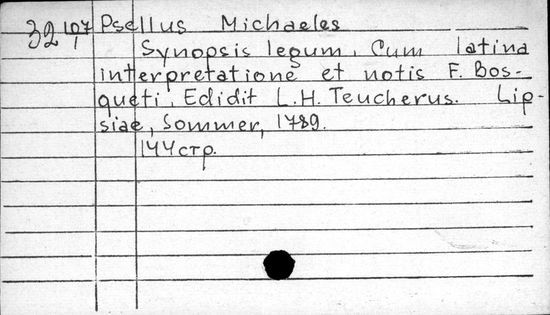 32 107 Psellus Michaeles
Synopsis legum. Cum latina
interpretatione et notis F. Bos-
queti. Edidit L.H. Teucherus. Lip-
siae, Sommer, 1789.
144 стр.